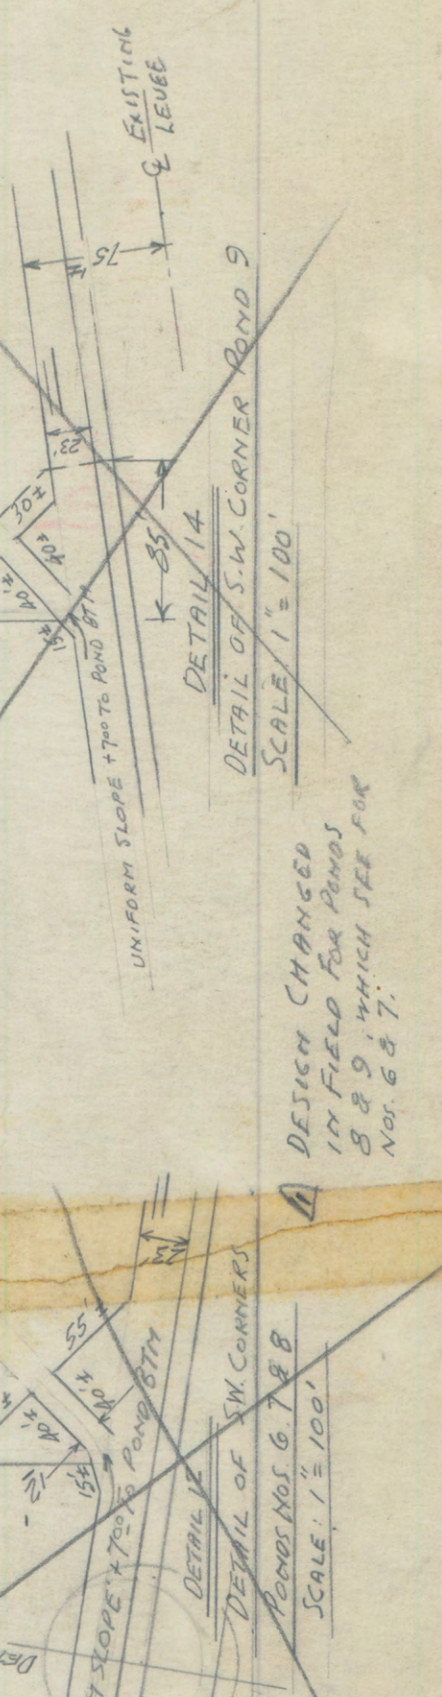 ℄ EXISTING
LEVEE
75'
23'
30±
40±
40'±
15±
85'
UNIFORM SLOPE +7.00 TO POND BTM
DETAIL 14
DETAIL OF S.W. CORNER POND 9
SCALE 1" = 100'
DESIGN CHANGED
IN FIELD FOR PONDS
8 & 9, WHICH SEE FOR
NOS. 6 & 7.
23'
55'±
40'±
40'±
12'±
15±
SLOPE +7.00 TO POND BTM
DETAIL 12
DETAIL OF S.W. CORNERS
PONDS NOS 6, 7 & 8
SCALE: 1" = 100'